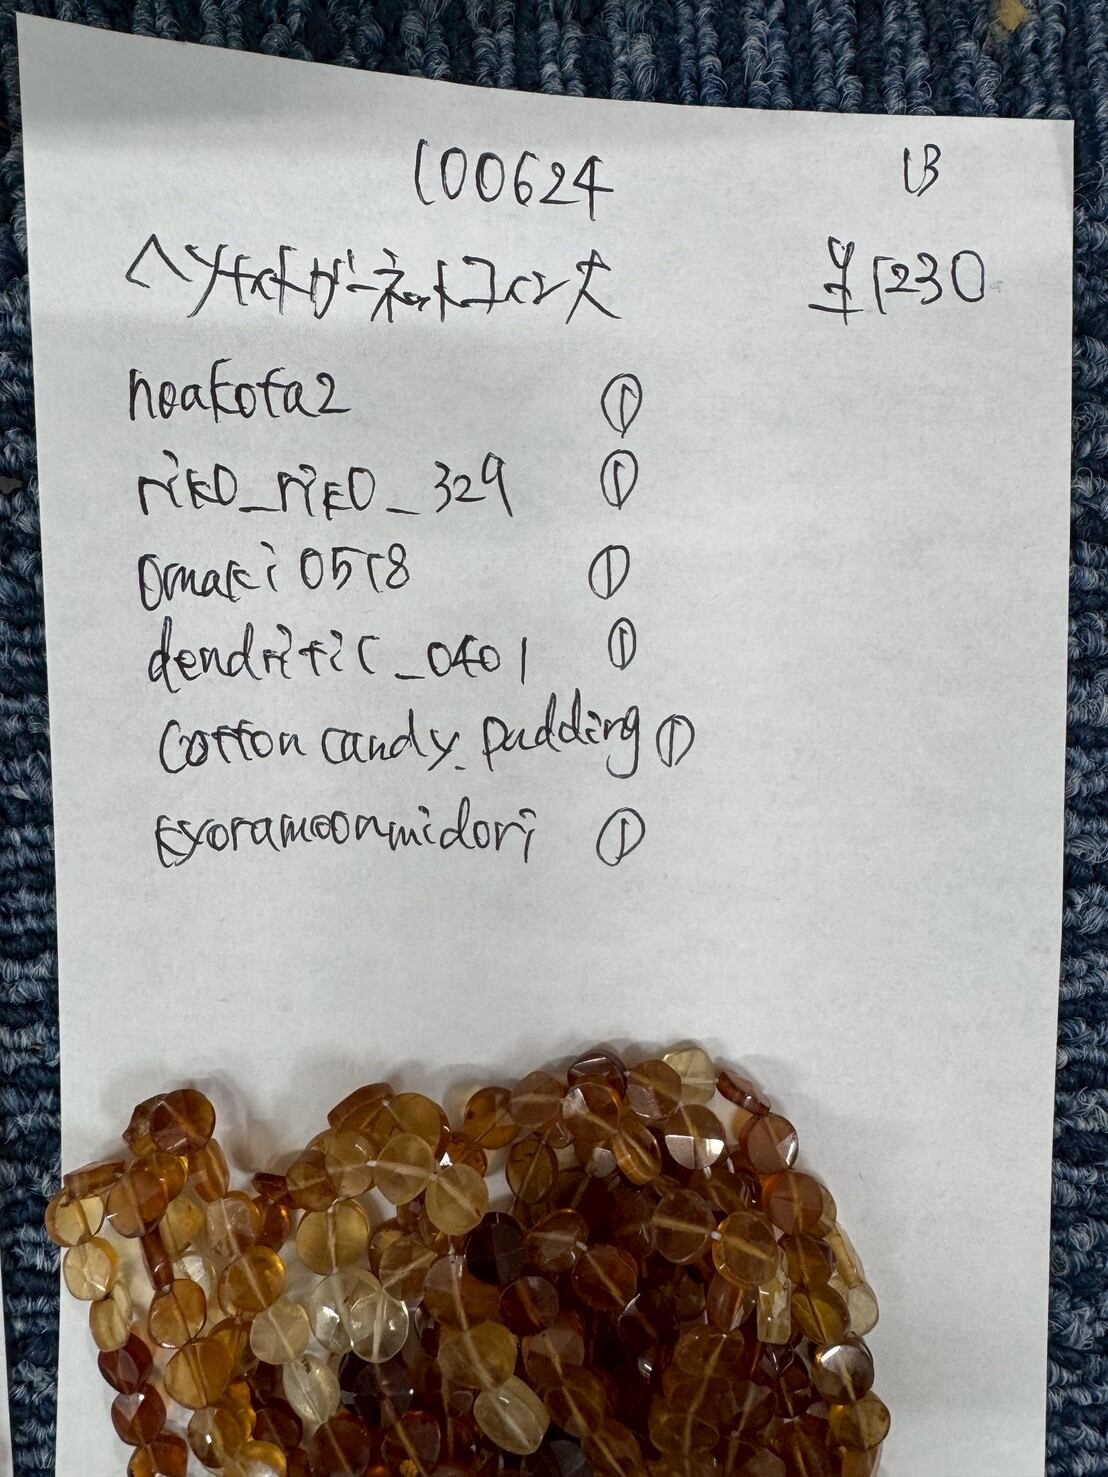 100624 13
ヘソナイトガーネットコイン大 ¥1230
noakota2 ①
riko_riko_329 ①
omaki0518 ①
dendritic_0401 ①
cottoncandy_pudding ①
kyoramoonmidori ①